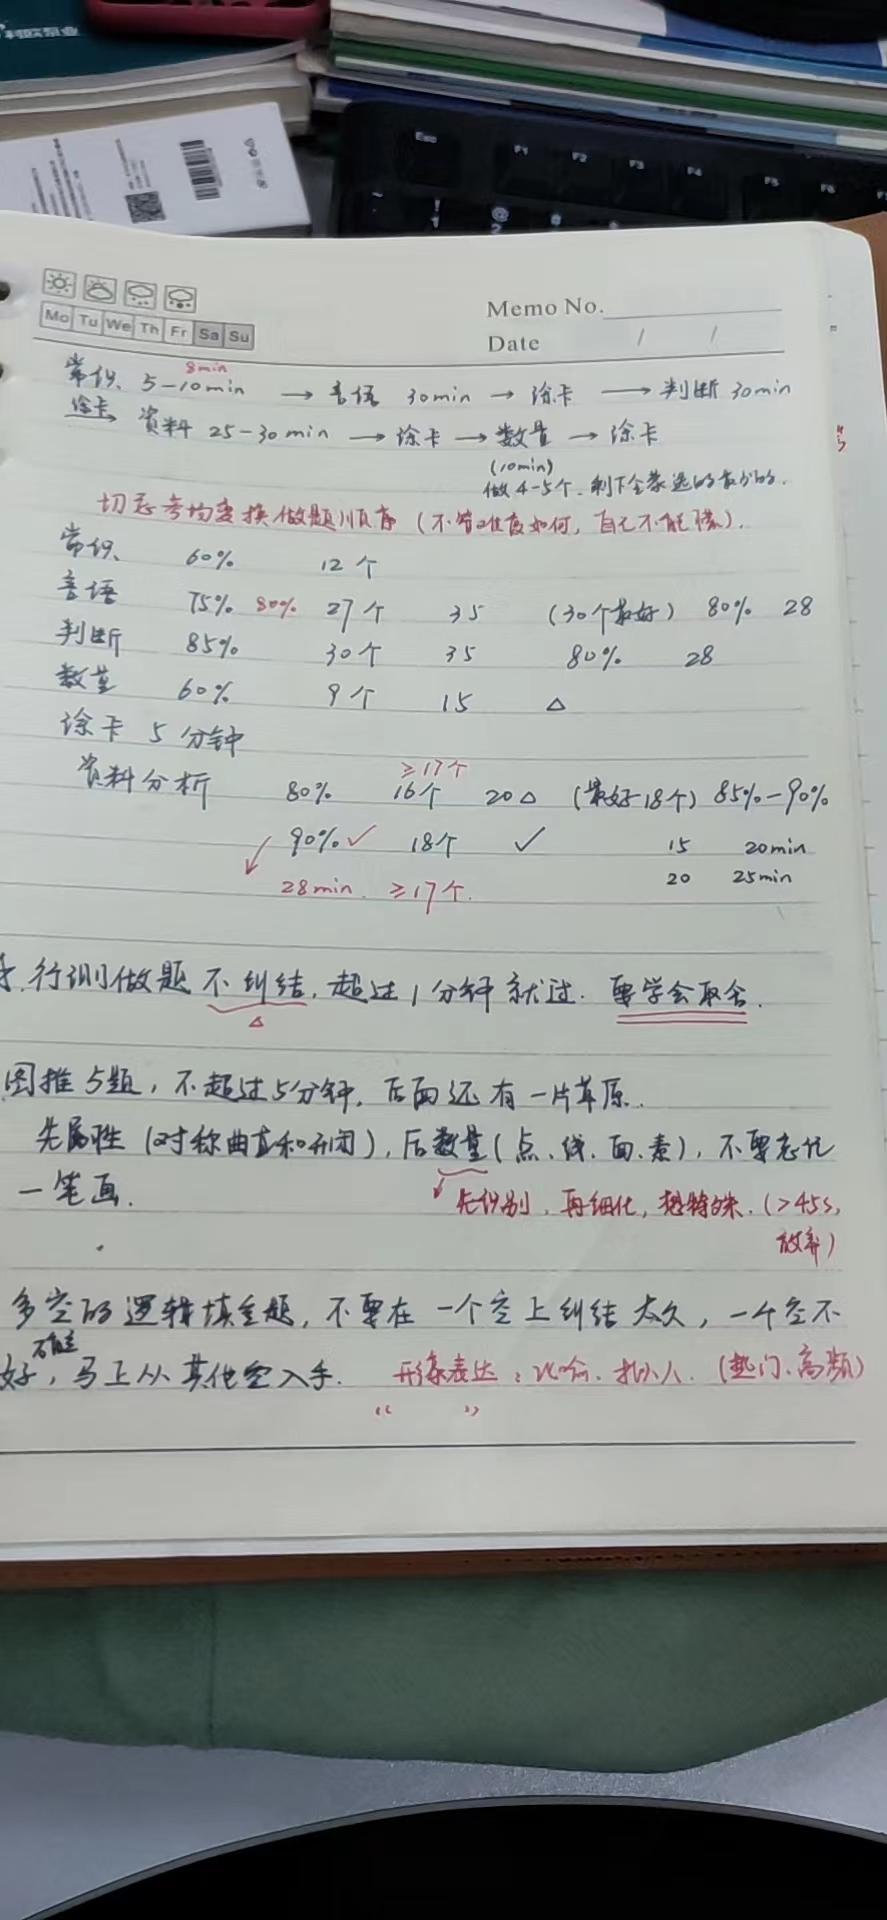 Esc F1 F2 F3 F4 F5 F6
Memo No.
Mo Tu We Th Fr Sa Su
Date / /
8min
常识 5-10min → 言语 30min → 涂卡 → 判断 30min
涂卡→ 资料 25-30min → 涂卡 → 数量 → 涂卡
(10min)
做4-5个. 剩下全蒙选的最少的.
切忌考场变换做题顺序 (不管难度如何, 自己不能慌).
常识 60% 12个
言语 75% 80% 27个 35 (30个最好) 80% 28
判断 85% 30个 35 80% 28
数量 60% 9个 15 △
涂卡 5分钟
≥17个
资料分析 80% 16个 20△ (最好18个) 85%-90%
90%✓ 18个 ✓ 15 20min
28min. ≥17个. 20 25min
行测做题不纠结, 超过1分钟就过. 要学会取舍.
△
图推5题, 不超过5分钟, 后面还有一片草原.
先属性 (对称曲直和开闭), 后数量 (点、线、面、素), 不要忘记
一笔画.
先识别, 再细化, 想特殊. (>45s,
放弃)
多空的逻辑填空题, 不要在一个空上纠结太久, 一个空不
好, 马上从其他空入手. 形象表达: 比喻、拟人. (热门、高频)
“ ”